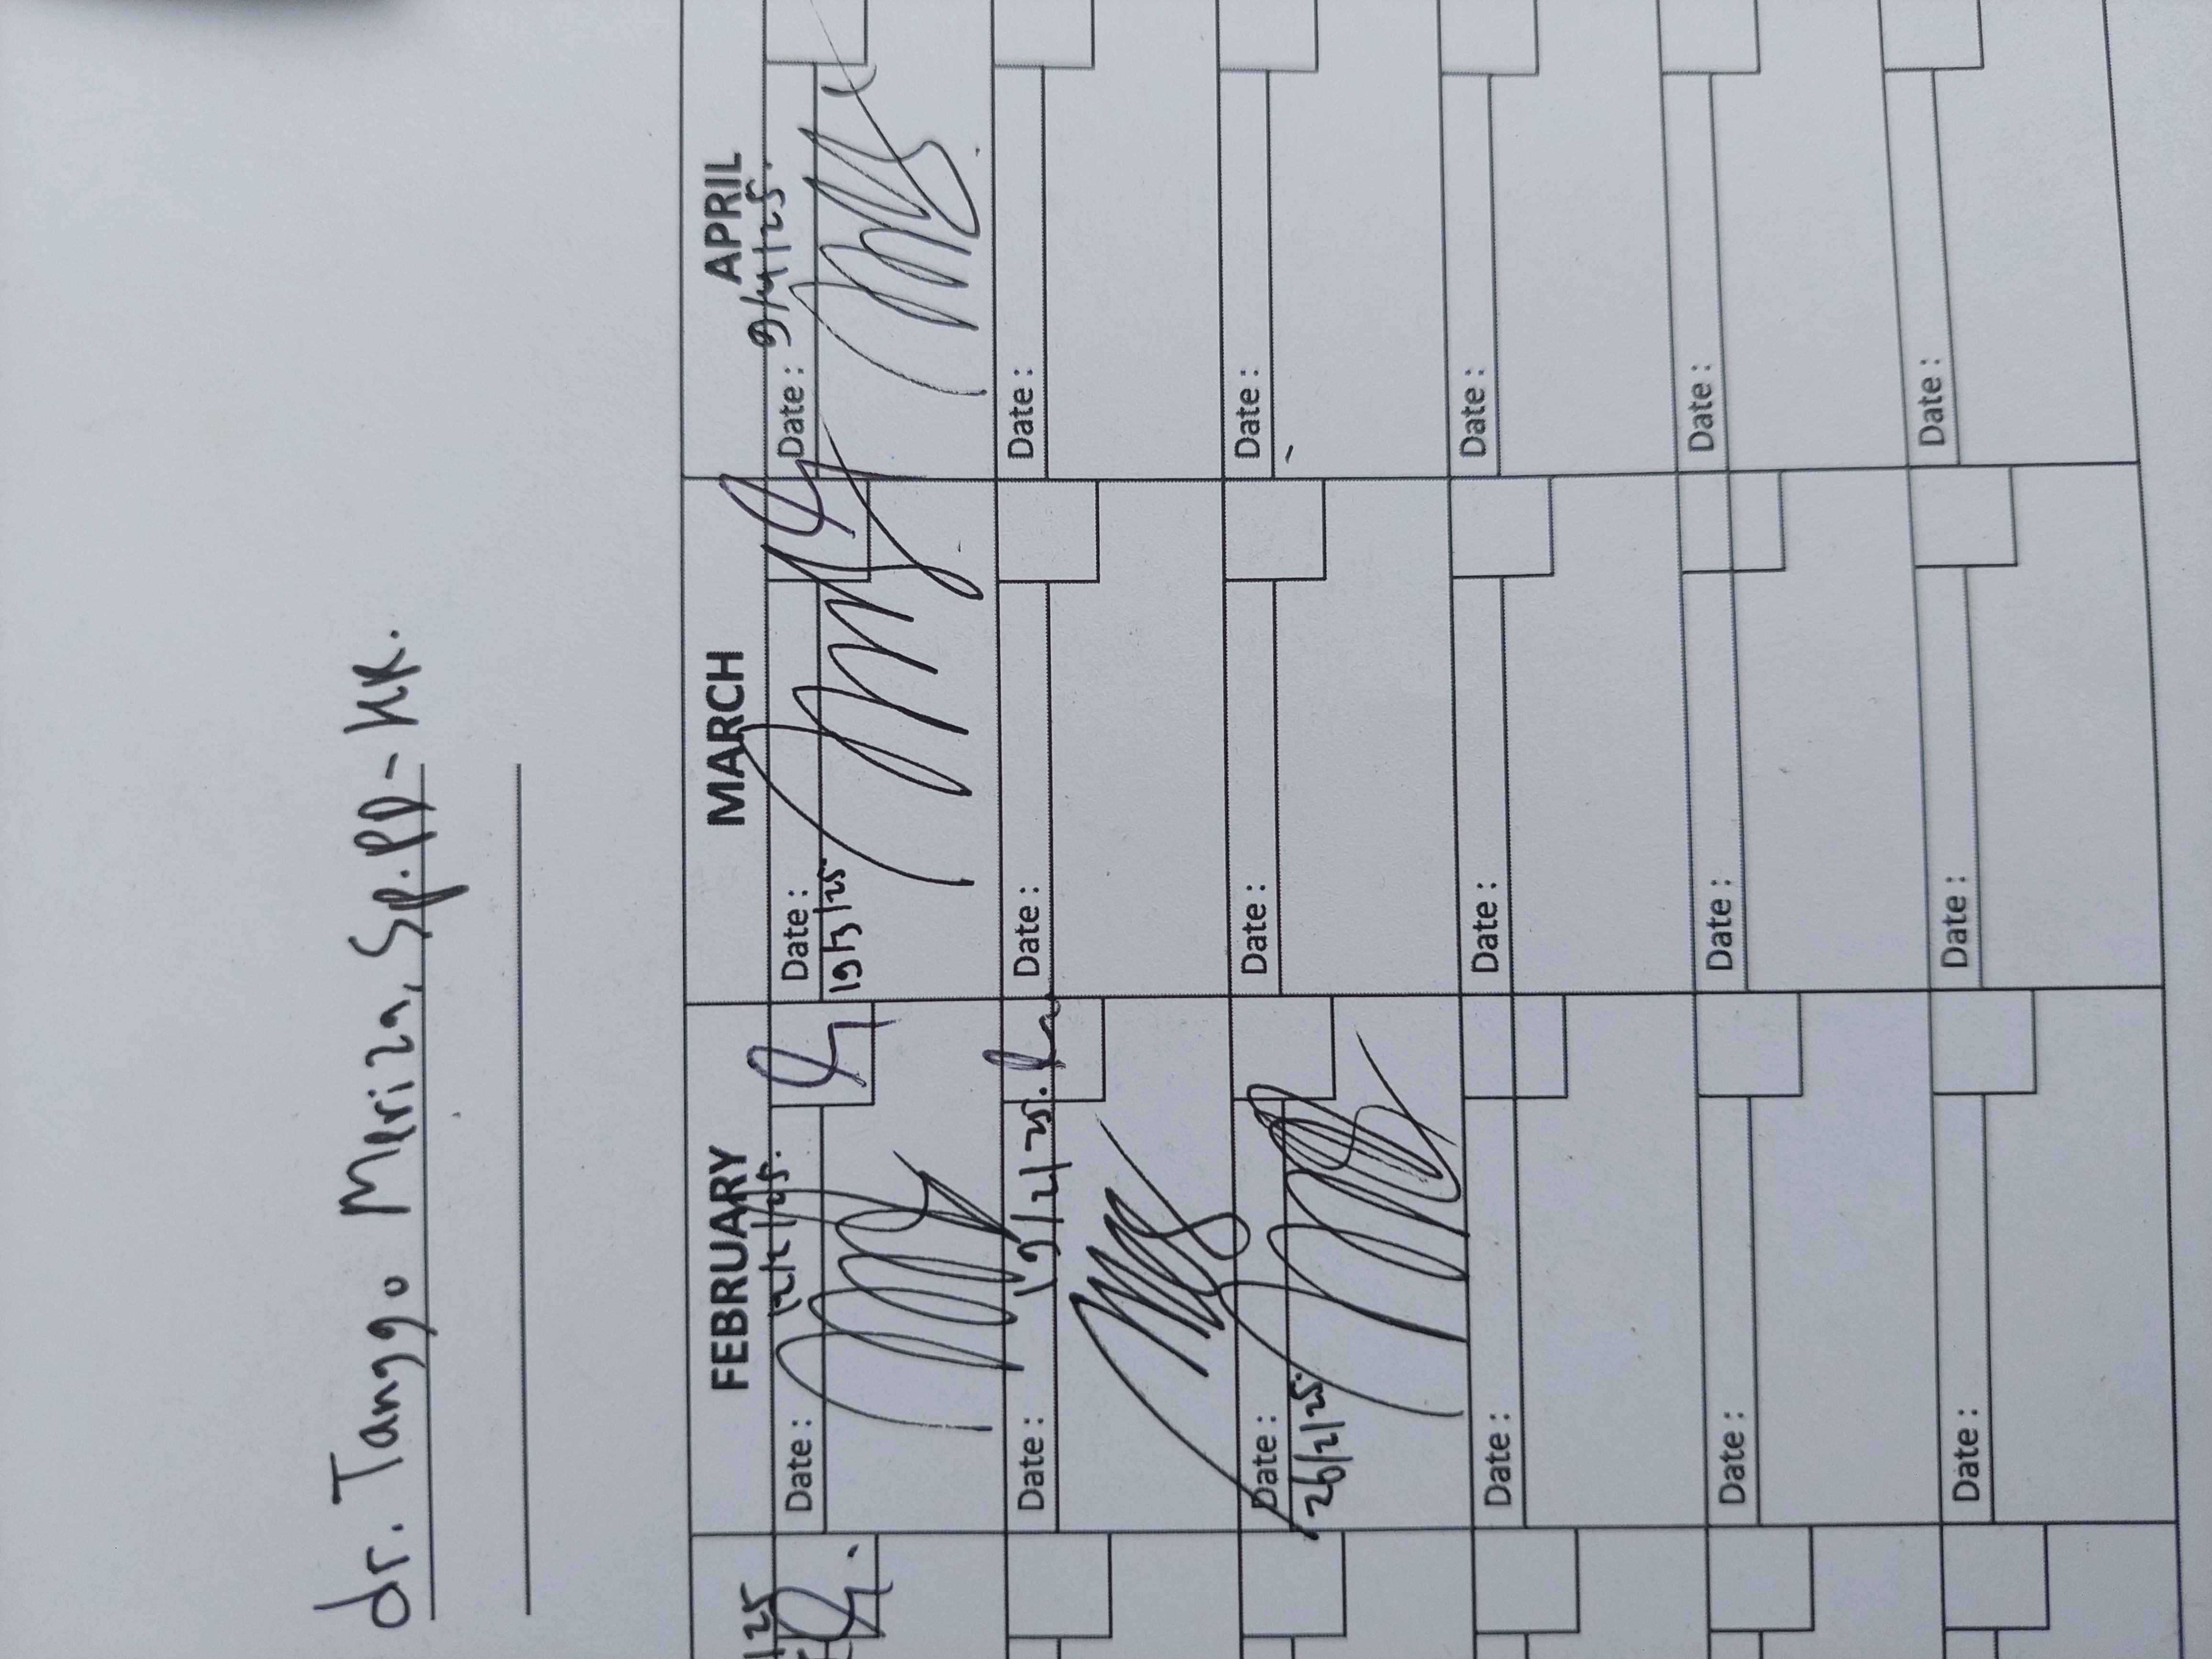 dr. Tanggo Meriza, Sp.PD-KR.
/25 FEBRUARY MARCH APRIL
Date: 12/2/25. Date: Date: 9/4/25.
19/3/25.
Date: 19/2/25. Date: Date:
Date: Date: Date:
26/2/25.
Date: Date: Date:
Date: Date: Date:
Date: Date: Date: